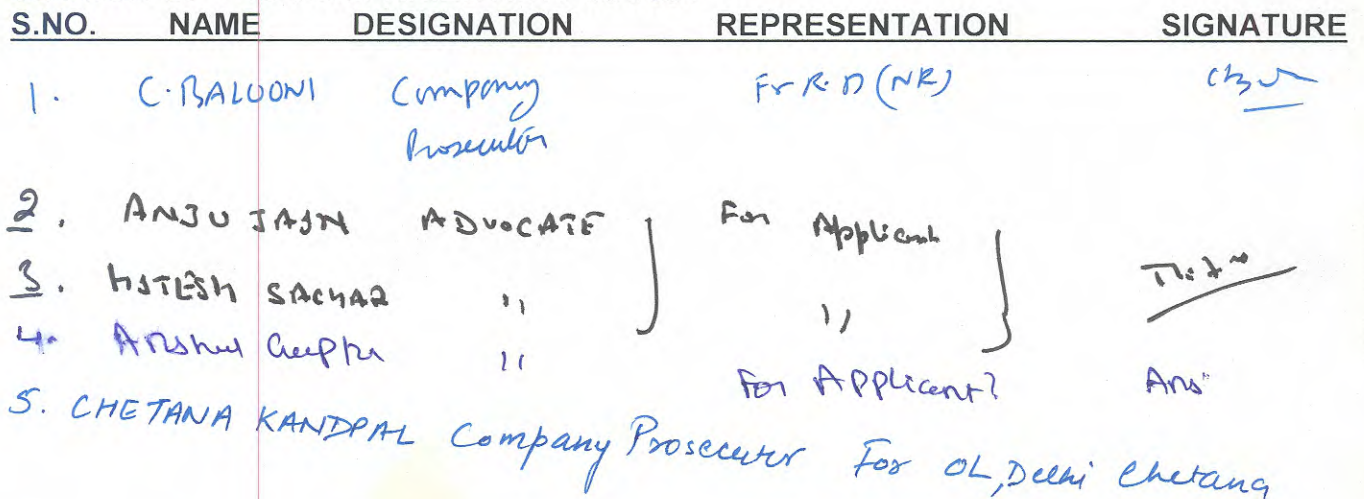 S.NO. NAME DESIGNATION REPRESENTATION SIGNATURE
1. C. BALOONI Company Prosecutor For R.D (NR)
2. ANJU JAIN ADVOCATE For Applicant
3. HITESH SACHAR " "
4. Anshul Gupta " For Applicant
5. CHETANA KANDPAL Company Prosecutor For OL, Delhi Chetana